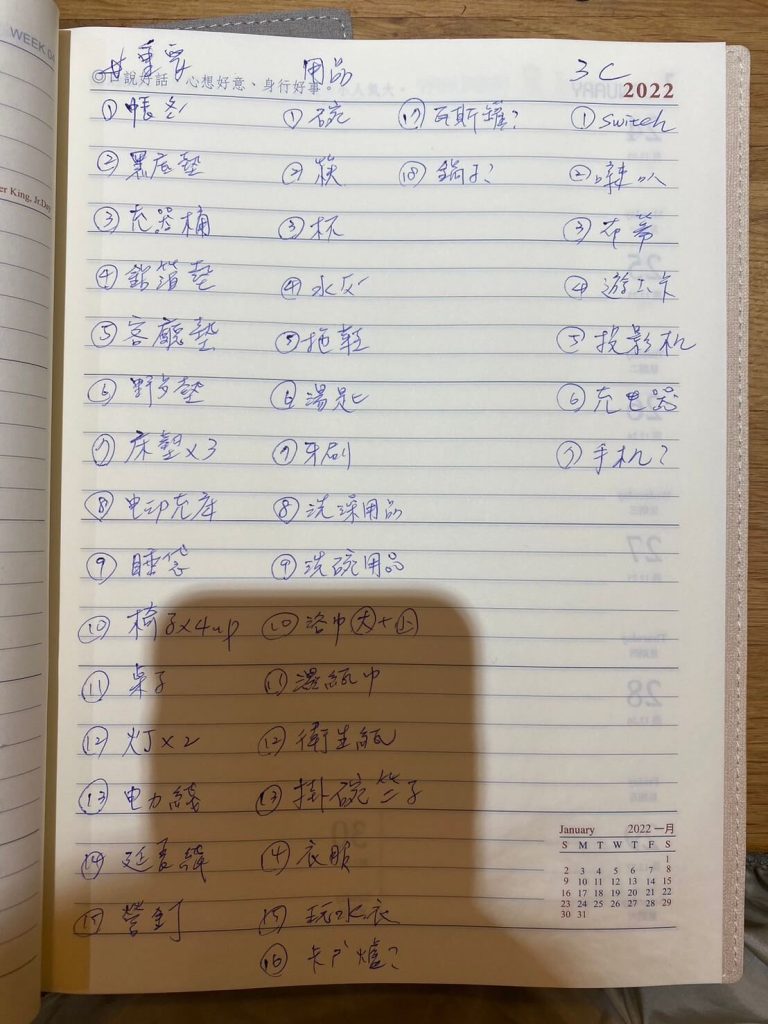 WEEK 04
er King, Jr.Day
#重要 用品 3C
◎口說好話、心想好意、身行好事。 2022
①帳篷 ①碗 ⑰瓦斯罐? ①switch
②黑底墊 ②筷 ⑱鍋子? ②喇叭
③充器桶 ③杯 ③布幕
④鋁箔墊 ④水 ④遊
⑤客廳墊 ⑤拖鞋 ⑤投影机
⑥野歺墊 ⑥湯匙 ⑥充电器
⑦床墊x3 ⑦牙刷 ⑦手机?
⑧电动充 ⑧洗澡用品
⑨睡袋 ⑨洗碗用品
⑩椅子x4up ⑩浴巾大+小
⑪桌子 ⑪濕紙巾
⑫灯x2 ⑫衛生紙
⑬电力綫 ⑬掛碗 子
⑭延長線 ⑭衣服
⑮營釘 ⑮玩水衣
⑯卡户爐?
January 2022 一月
S M T W T F S
1
2 3 4 5 6 7 8
9 10 11 12 13 14 15
16 17 18 19 20 21 22
23 24 25 26 27 28 29
30 31